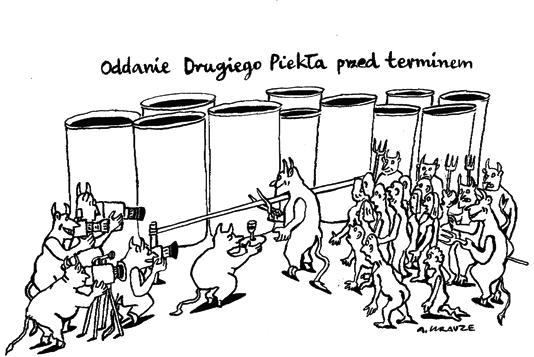 Oddanie Drugiego Piekła przed terminem
A. KRAUZE